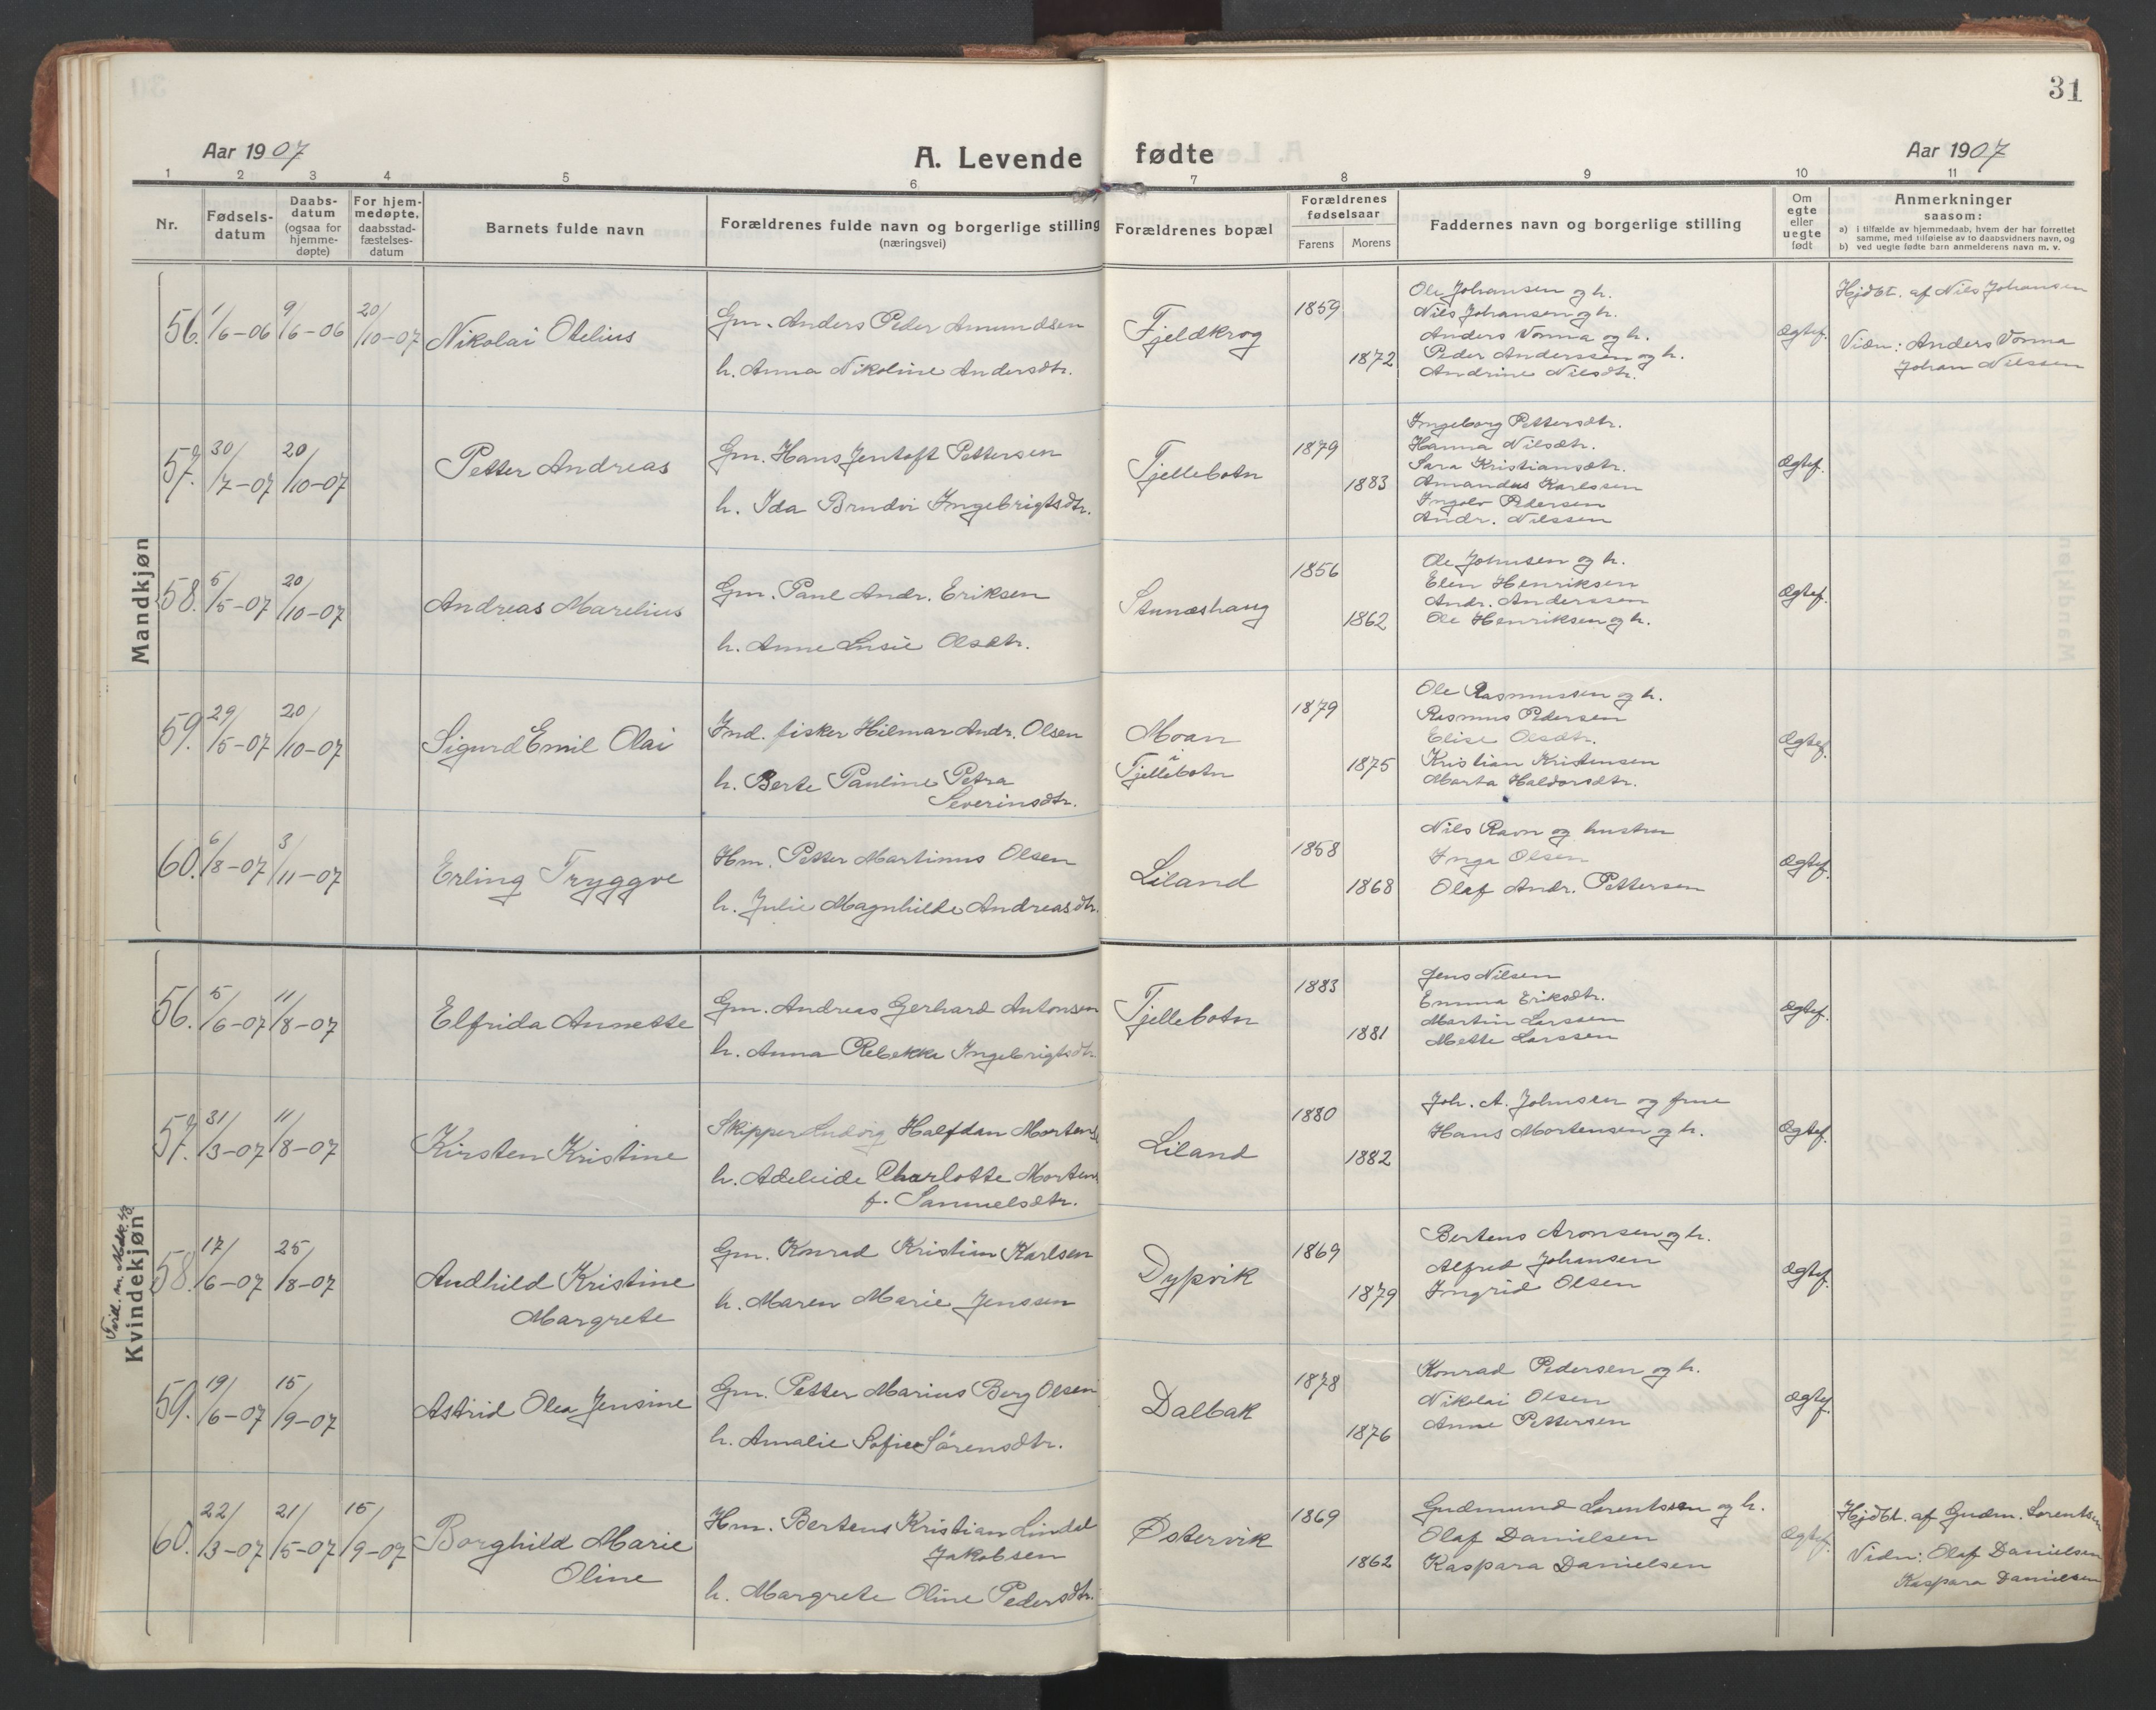 31
Aar 1907
A. Levende fødte
Aar 1907
1 2 3 4 5 6 7 8 9 10 11
Nr.
Fødsels-
datum
Daabs-
datum
(ogsaa for
hjemme-
døpte)
For hjem-
medøpte,
daabsstad-
fæstelses-
datum
Barnets fulde navn
Forældrenes fulde navn og borgerlige stilling
(næringsvei)
Forældrenes bopæl
Forældrenes
fødselsaar
Farens Morens
Faddernes navn og borgerlige stilling
Om
egte
eller
uegte
født
Anmerkninger
saasom:
a) i tilfælde av hjemmedaab, hvem der har forrettet
samme, med tilføielse av to daabsvidners navn, og
b) ved uegte fødte barn anmelderens navn m. v.
Mandkjøn
56. 1/6-06 9/6-06 20/10-07
Nikolai Otelius
Gm. Anders Peder Amundsen
h. Anna Nikoline Andersdtr.
Fjeldkrog
1859
1872
Ole Johansen og h.
Nils Johansen og h.
Anders Vonna og h.
Peder Anderssen og h.
Andrine Nilsdtr.
Ægtef.
Hjdbt. af Nils Johansen
Vidn: Anders Vonna
Johan Nilssen
57. 30/7-07 20/10-07
Petter Andreas
Gm. Hans Jentoft Pettersen
h. Ida Brudvi Ingebrigtsdtr.
Tjellebotn
1879
1883
Ingeborg Pettersdtr.
Hanna Nilsdtr.
Sara Kristiansdtr.
Amandus Karlssen
Ingolv Pedersen
Andr. Nilssen
Ægtef.
58. 5/5-07 20/10-07
Andreas Marelius
Gm. Paul Andr. Eriksen
h. Anne Lusie Olsdtr.
Stunæshaug
1856
1862
Ole Johnsen og h.
Elen Henriksen
Andr. Anderssen
Ole Henriksen og h.
Ægtef.
59. 29/5-07 20/10-07
Sigurd Emil Olai
Ind. fisker Hilmar Andr. Olsen
h. Berte Pauline Petra
Severinsdtr.
Moan
i
Tjellebotn
1879
1875
Ole Rasmussen og h.
Rasmus Pedersen
Elise Olsdtr.
Kristian Kristensen
Marta Haldorsdtr.
Ægtef.
60. 6/8-07 3/11-07
Erling Tryggve
Hm. Petter Martinus Olsen
h. Julie Magnhilde Andreasdtr.
Liland
1858
1868
Nils Ravn og hustru
Inga Olsen
Olaf Andr. Pettersen
Ægtef.
Kvindekjøn
56. 5/6-07 11/8-07
Elfrida Annette
Gm. Andreas Gerhard Antonsen
h. Anna Rebekka Ingebrigtsdtr.
Tjellebotn
1883
1881
Jens Nilsen
Emma Eriksdtr.
Martin Larssen
Mette Larssen
Ægtef.
57. 31/3-07 11/8-07
Kirsten Kristine
Skipper Ludvig Halfdan Mortens
h. Adeleide Charlotte Mortens
f. Samuelsdtr.
Liland
1880
1882
Joh. A. Johnsen og frue
Hans Mortensen og h.
Ægtef.
58. 17/6-07 25/8-07
Audhild Kristine
Margrete
Gm. Konrad Kristian Karlsen
h. Maren Marie Jenssen
Dypvik
1869
1879
Bertens Aronsen og h.
Alfred Johansen
Ingrid Olsen
Ægtef.
59. 19/6-07 15/9-07
Astrid Olea Jensine
Gm. Petter Marius Berg Olsen
h. Amalie Sofie Sørensdtr.
Dalbak
1878
1876
Konrad Pedersen og h.
Nikolai Olsen
Anne Pettersen
Ægtef.
60. 22/3-07 21/5-07 15/9-07
Borghild Marie
Oline
Hm. Bertens Kristian Lindal
Jakobsen
h. Margrete Oline Pedersdtr.
Østervik
1869
1862
Gudmund Lorentssen og h.
Olaf Danielsen
Kaspara Danielsen
Ægtef.
Hjdbt. af Gudm. Lorentsen
Vidn: Olaf Danielsen
Kaspara Danielsen